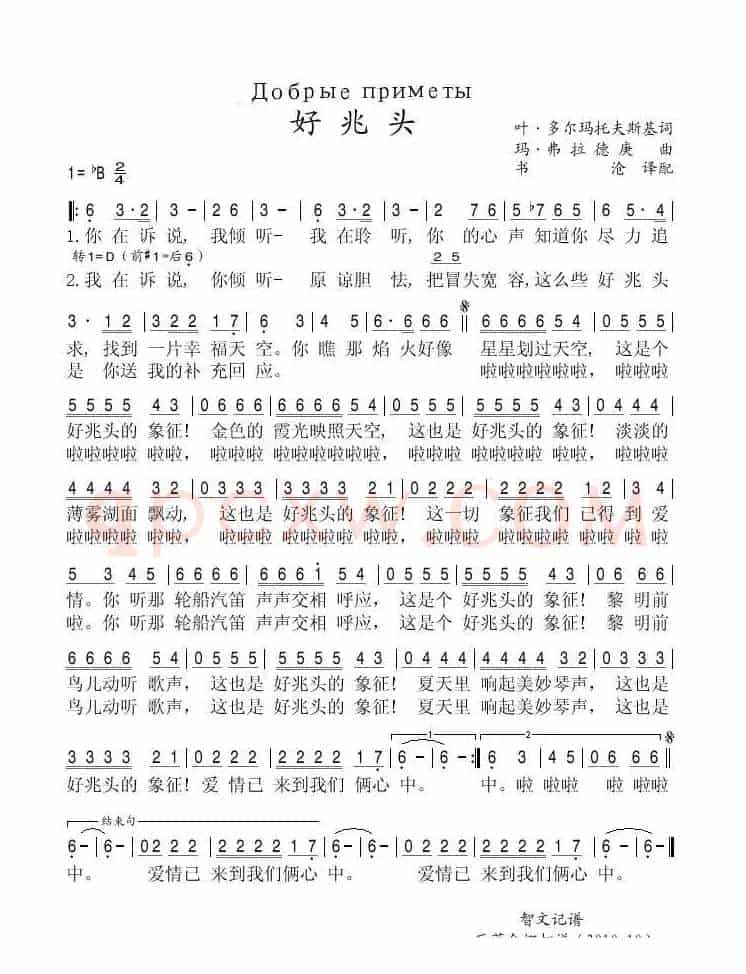 Добрые приметы
好兆头
叶·多尔玛托夫斯基词
玛·弗拉德庚 曲
书 沧 译配
1=♭B 2/4
‖: 6 3·2 | 3–| 2 6 | 3– | 6 3·2 | 3·4 | 2 76 | 5 ♭765 | 6 5·4 |
1.你 在 诉 说, 我倾 听– 我 在聆 听, 你 的心 声 知道你 尽 力 追
转1=D（前♯1=后6） 2 5
2.我 在 诉 说, 你倾 听– 原 谅胆 怯, 把冒失宽 容,这么些 好 兆 头
3· 12 | 3 2 2 1 7 | 6 3 | 3 4 5 | 6· 666 ‖ 6666 54 | 0555 |
求, 找到 一片幸 福天 空。你 瞧 那 焰 火好像 星星划 过天空, 这是个
是 你送 我的补 充回 应。 啦啦啦啦啦啦, 啦啦啦
5555 43 | 0666 | 6666 54 | 0555 | 5555 43 | 0444 |
好兆头的 象征! 金色的 霞光映照天空, 这也是 好兆头的 象征! 淡淡的
啦啦啦啦 啦啦, 啦啦啦 啦啦啦啦啦啦, 啦啦啦 啦啦啦啦 啦啦, 啦啦啦
4444 32 | 0333 | 3333 21 | 0222 | 2222 12 | 3 64 |
薄雾湖面 飘动, 这也是 好兆头的 象征! 这一切 象征我们 已得 到 爱
啦啦啦啦 啦啦, 啦啦啦 啦啦啦啦 啦啦, 啦啦啦 啦啦啦啦 啦啦 啦 啦
5 3 45 | 6666 54 | 6666 1 | 0555 | 5555 43 | 06 66 |
情。你 听那 轮船汽笛 声声交相 呼应, 这是个 好兆头的 象征! 黎明前
啦。你 听那 轮船汽笛 声声交相 呼应, 这是个 好兆头的 象征! 黎明前
6666 54 | 0555 | 5555 43 | 0444 | 4444 32 | 0333 |
鸟儿动听 歌声, 这也是 好兆头的 象征! 夏天里 响起美妙琴声, 这也是
鸟儿动听 歌声, 这也是 好兆头的 象征! 夏天里 响起美妙琴声, 这也是
1 2
3333 21 | 0222 | 2222 17 | 6– | 6– :‖ 6 3 | 4 5 | 06 66 ‖
好兆头的 象征! 爱 情已 来到我们 俩心 中。 中。啦 啦啦 啦 啦啦
结束句
6– | 6– | 0222 | 2222 17 | 6– | 6– | 0222 | 2222 17 | 6– | 6– ‖
中。 爱情已 来到我们俩心 中。 爱情已 来到我们俩心 中。
智文记谱
qpcxw.com